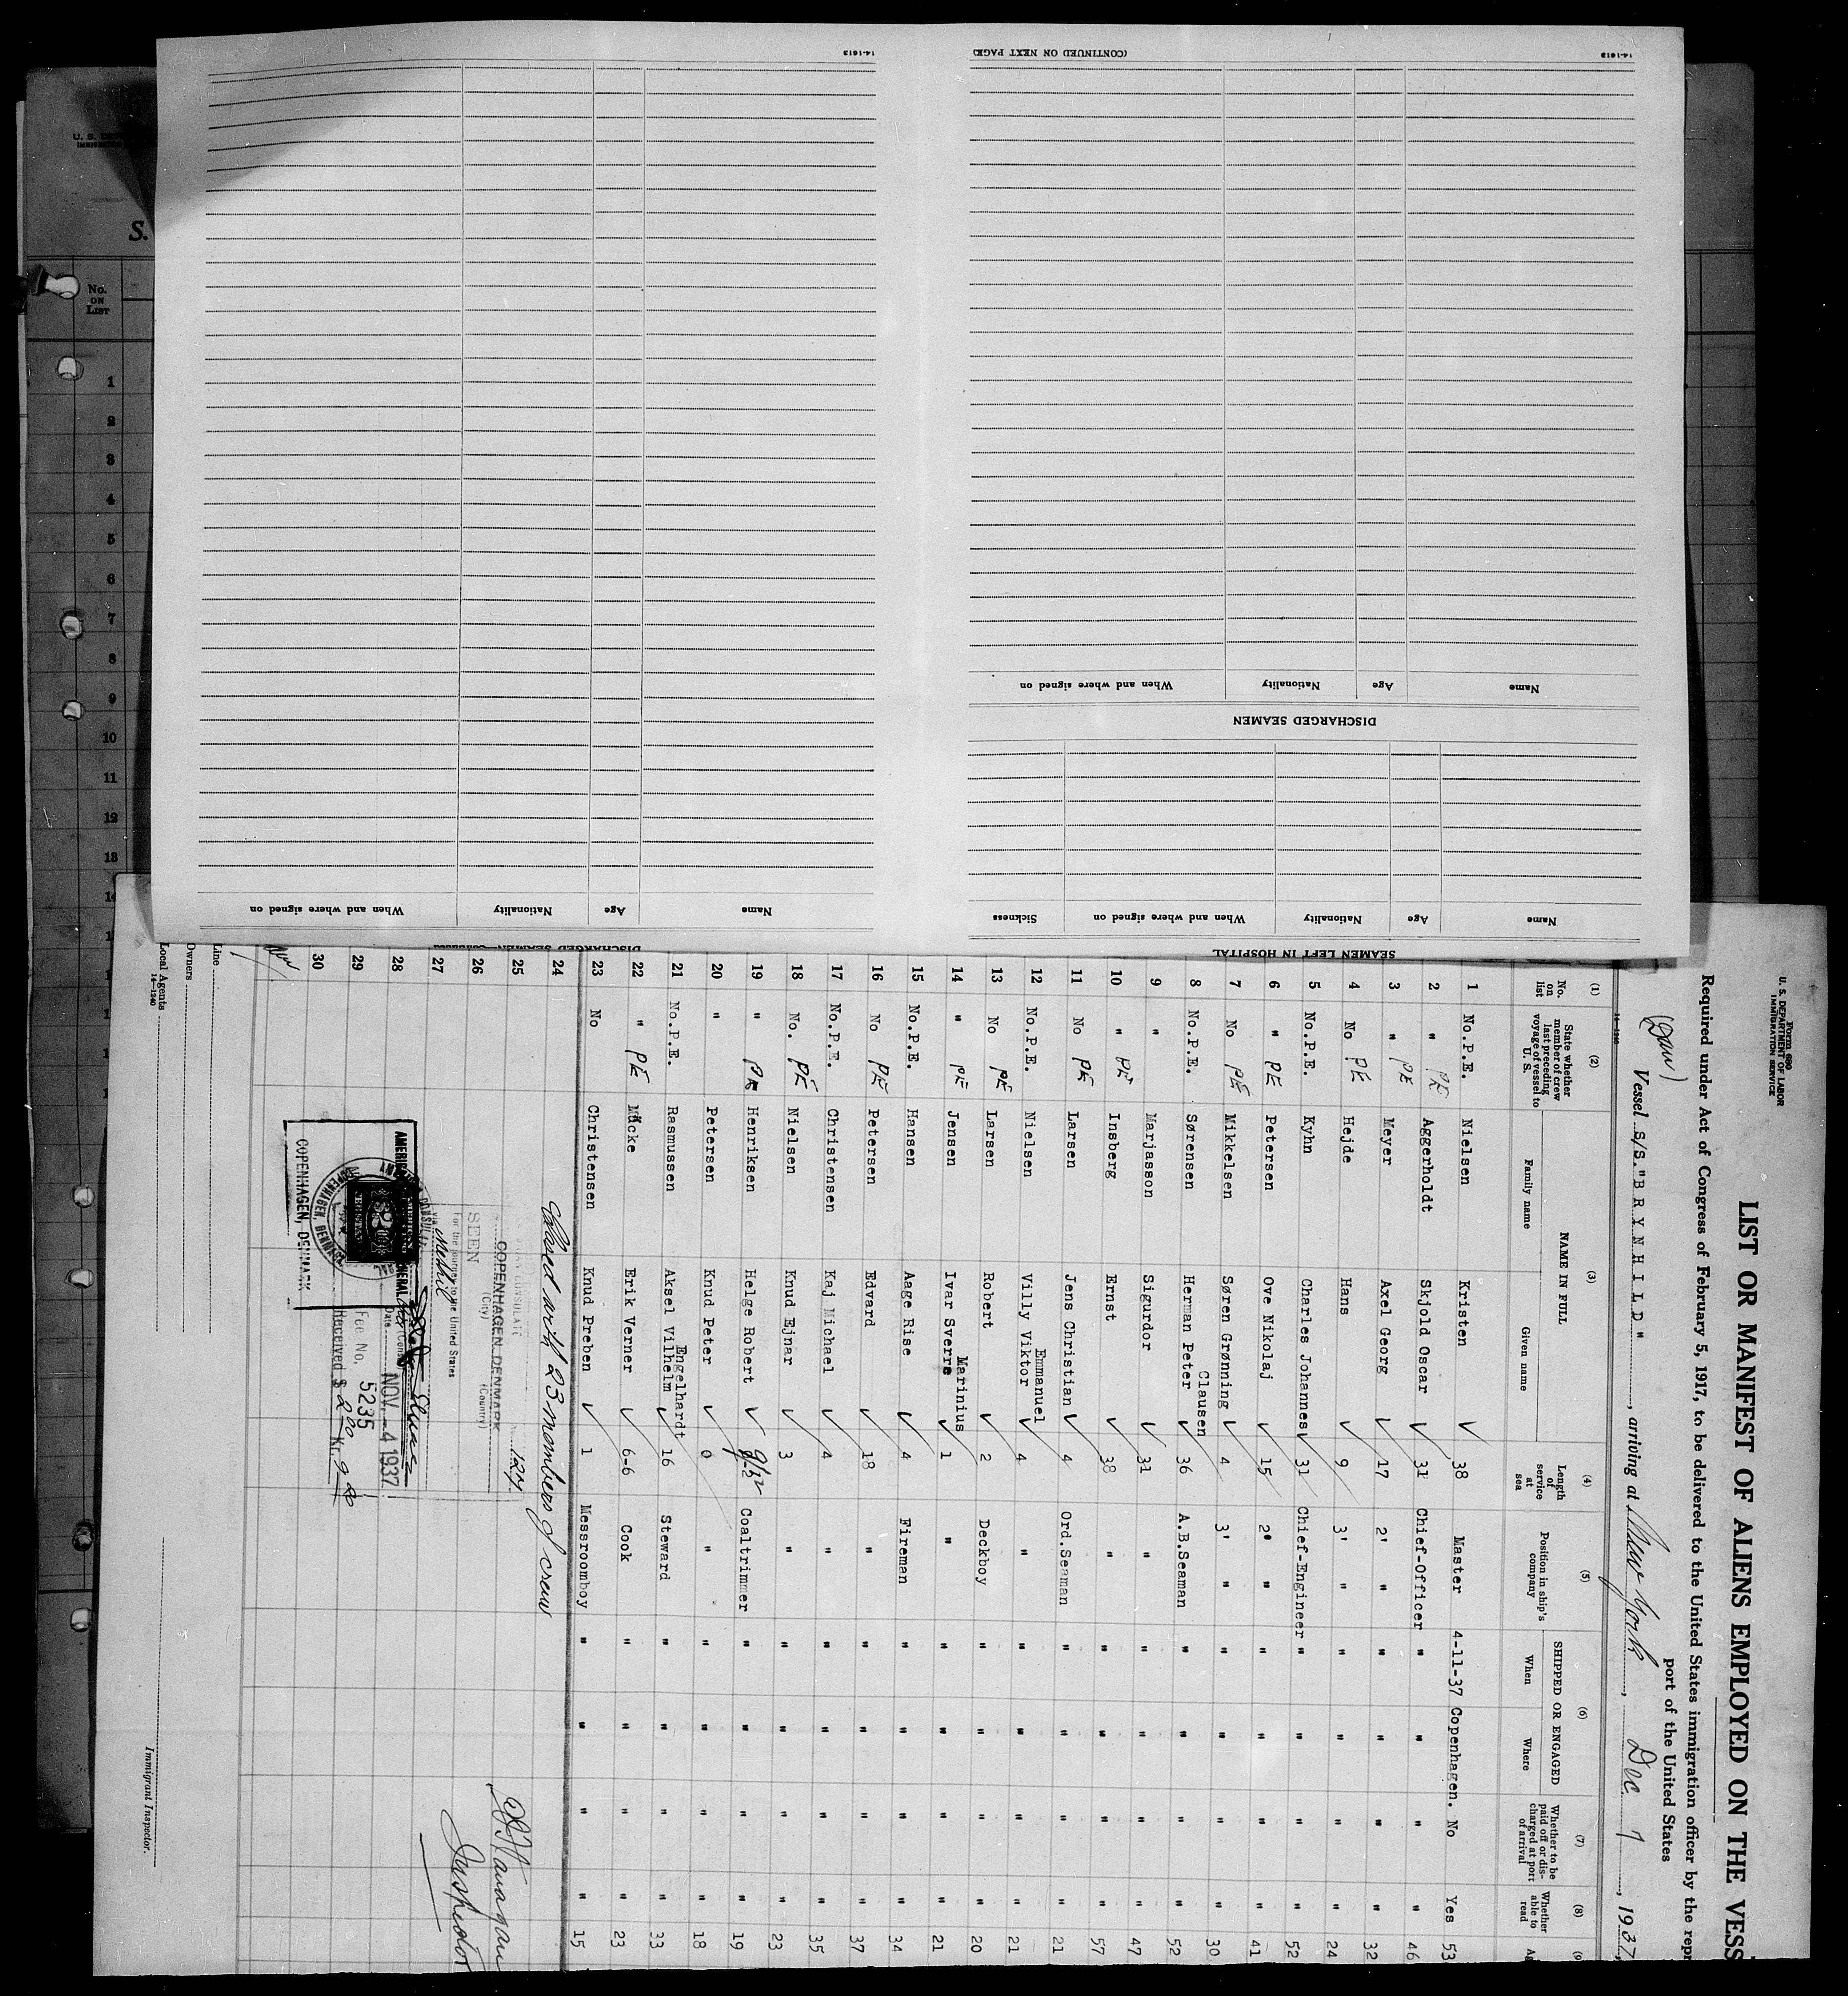 14-1613
(CONTINUED ON NEXT PAGE)
14-1613
Name
Age
Nationality
When and where signed on
DISCHARGED SEAMEN
Name
Age
Nationality
When and where signed on
Sickness
Name
Age
Nationality
When and where signed on
SEAMEN LEFT IN HOSPITAL
U. S. DEP
S.
No. ON LIST
1
2
3
4
5
6
7
8
9
10
11
12
13
Form 680
U. S. DEPARTMENT OF LABOR
IMMIGRATION SERVICE
LIST OR MANIFEST OF ALIENS EMPLOYED ON THE VESS
Required under Act of Congress of February 5, 1917, to be delivered to the United States immigration officer by the repr
port of the United States
(Dan)
Vessel S/S. "BRYNHILD", arriving at New York, Dec 7, 1937,
14-1240
(1) No. on list
(2) State whether member of crew last preceding voyage of vessel to U. S.
(3) NAME IN FULL
Family name
Given name
(4) Length of service at sea
(5) Position in ship's company
(6) SHIPPED OR ENGAGED
When
Where
(7) Whether to be paid off or discharged at port of arrival
(8) Whether able to read
1 No.P.E. Nielsen Kristen 38 Master 4-11-37 Copenhagen. No Yes 53
2 " PE Aggerholdt Skjold Oscar 31 Chief-Officer " " " " 46
3 " PE Meyer Axel Georg 17 2' " " " " " 32
4 No PE Hejde Hans 9 3' " " " " " 24
5 No.P.E. Kyhn Charles Johannes 31 Chief-Engineer " " " " 52
6 " PE Petersen Ove Nikolaj 15 2' " " " " " 41
7 No PE Mikkelsen Søren Grønning 4 3' " " " " " 30
8 No.P.E. Sørensen Herman Peter Clausen 36 A.B.Seaman " " " " 52
9 " Marjasson Sigurdor 31 " " " " " 47
10 " PE Insberg Ernst 38 " " " " " 57
11 No PE Larsen Jens Christian 4 Ord.Seaman " " " " 21
12 No.P.E. Nielsen Villy Viktor Emmanuel 4 " " " " " 21
13 No PE Larsen Robert 2 Deckboy " " " " 20
14 " PE Jensen Ivar Sverre Marinius 1 " " " " " 21
15 No.P.E. Hansen Aage Rise 4 Fireman " " " " 34
16 No PE Petersen Edvard 18 " " " " " 37
17 No.P.E. Christensen Kaj Michael 4 " " " " " 35
18 No. PE Nielsen Knud Ejnar 3 " " " " " 23
19 " PE Henriksen Helge Robert Coaltrimmer " " " " 19
20 " Petersen Knud Peter 0 " " " " " 18
21 No.P.E. Rasmussen Aksel Vilhelm Engelhardt 16 Steward " " " " 33
22 " PE Mücke Erik Verner 6-6 Cook " " " " 23
23 No Christensen Knud Preben 1 Messroomboy " " " " 15
24
Closed with 23 members of crew
25
26
27
28
29
30
COPENHAGEN DENMARK
(City) (Country)
127
SEEN
For the journey to the United States
Inspector
NOV. -4 1937
Fee No. 5235
Received $ 2.00 Kr. 9.20
COPENHAGEN, DENMARK
Line
Owners
Local Agents
14-1240
Immigrant Inspector.